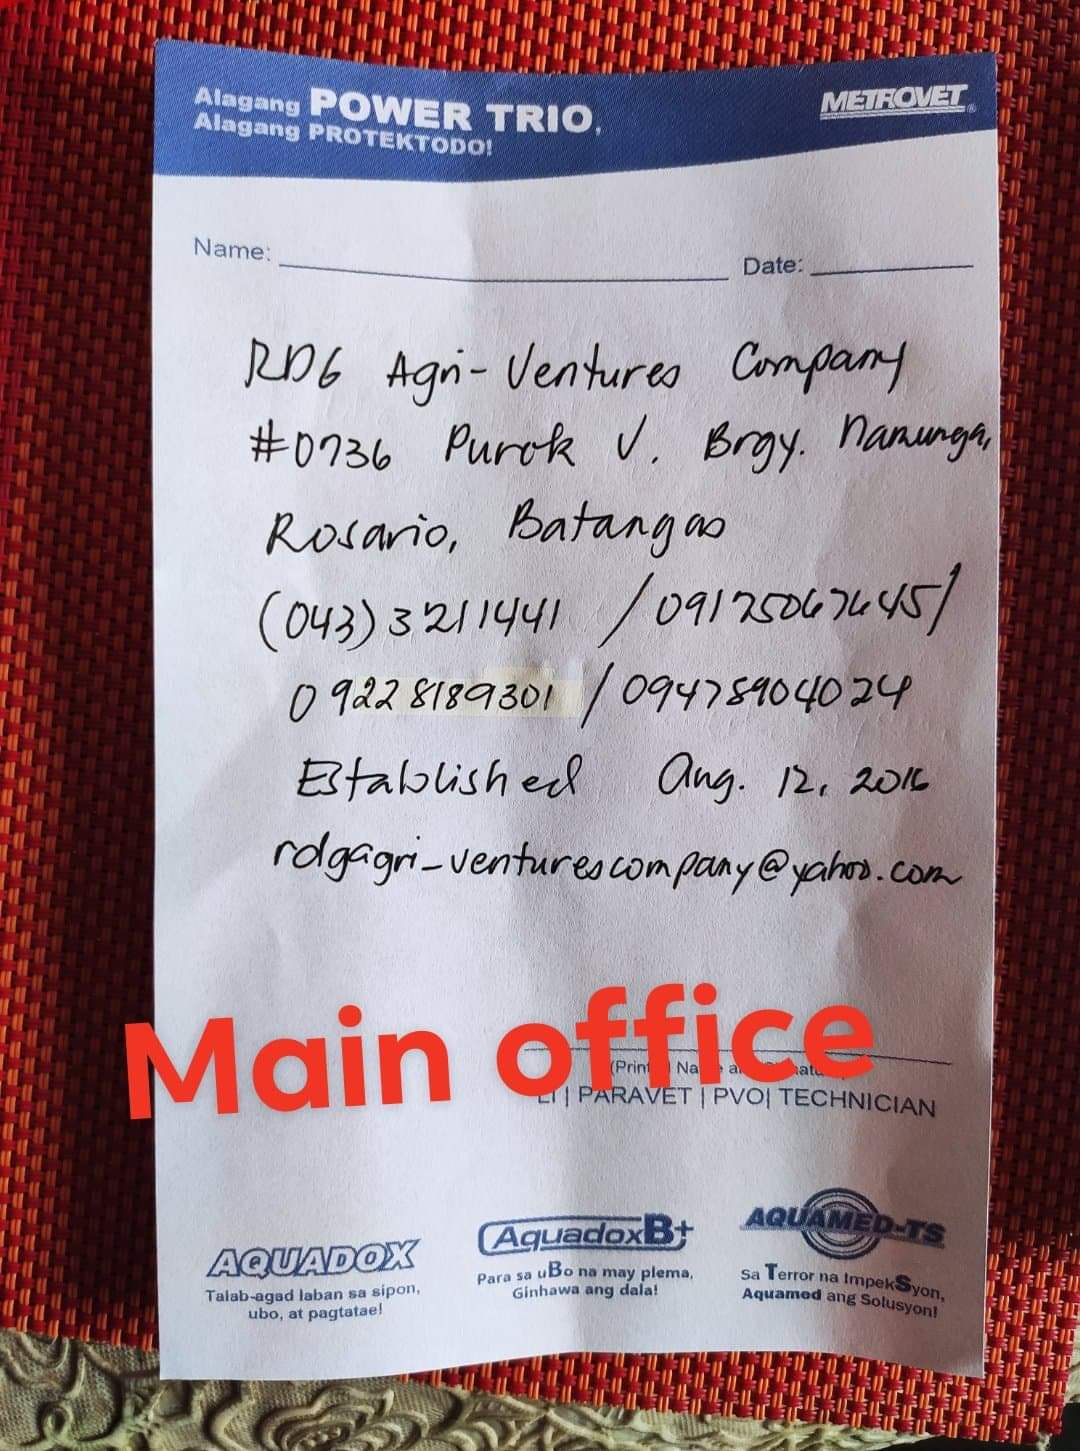 Alagang POWER TRIO,
Alagang PROTEKTODO!
METROVET®
Name:
Date:
RDG Agri-Ventures Company
#0736 Purok V. Brgy. Namunga,
Rosario, Batangas
(043)3211441 / 09175067645/
09228189301 / 09478904024
Established Aug. 12, 2016
rdgagri_venturescompany@yahoo.com
Main office
| PARAVET | PVO| TECHNICIAN
AQUADOX
Talab-agad laban sa sipon,
ubo, at pagtatae!
AquadoxB+
Para sa uBo na may plema,
Ginhawa ang dala!
AQUAMED-TS
Sa Terror na ImpekSyon,
Aquamed ang Solusyon!